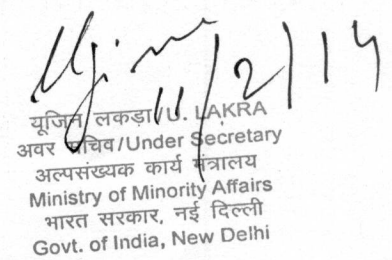 11/2/14
यूजिन लकड़ा/U. LAKRA
अवर सचिव/Under Secretary
अल्पसंख्यक कार्य मंत्रालय
Ministry of Minority Affairs
भारत सरकार, नई दिल्ली
Govt. of India, New Delhi